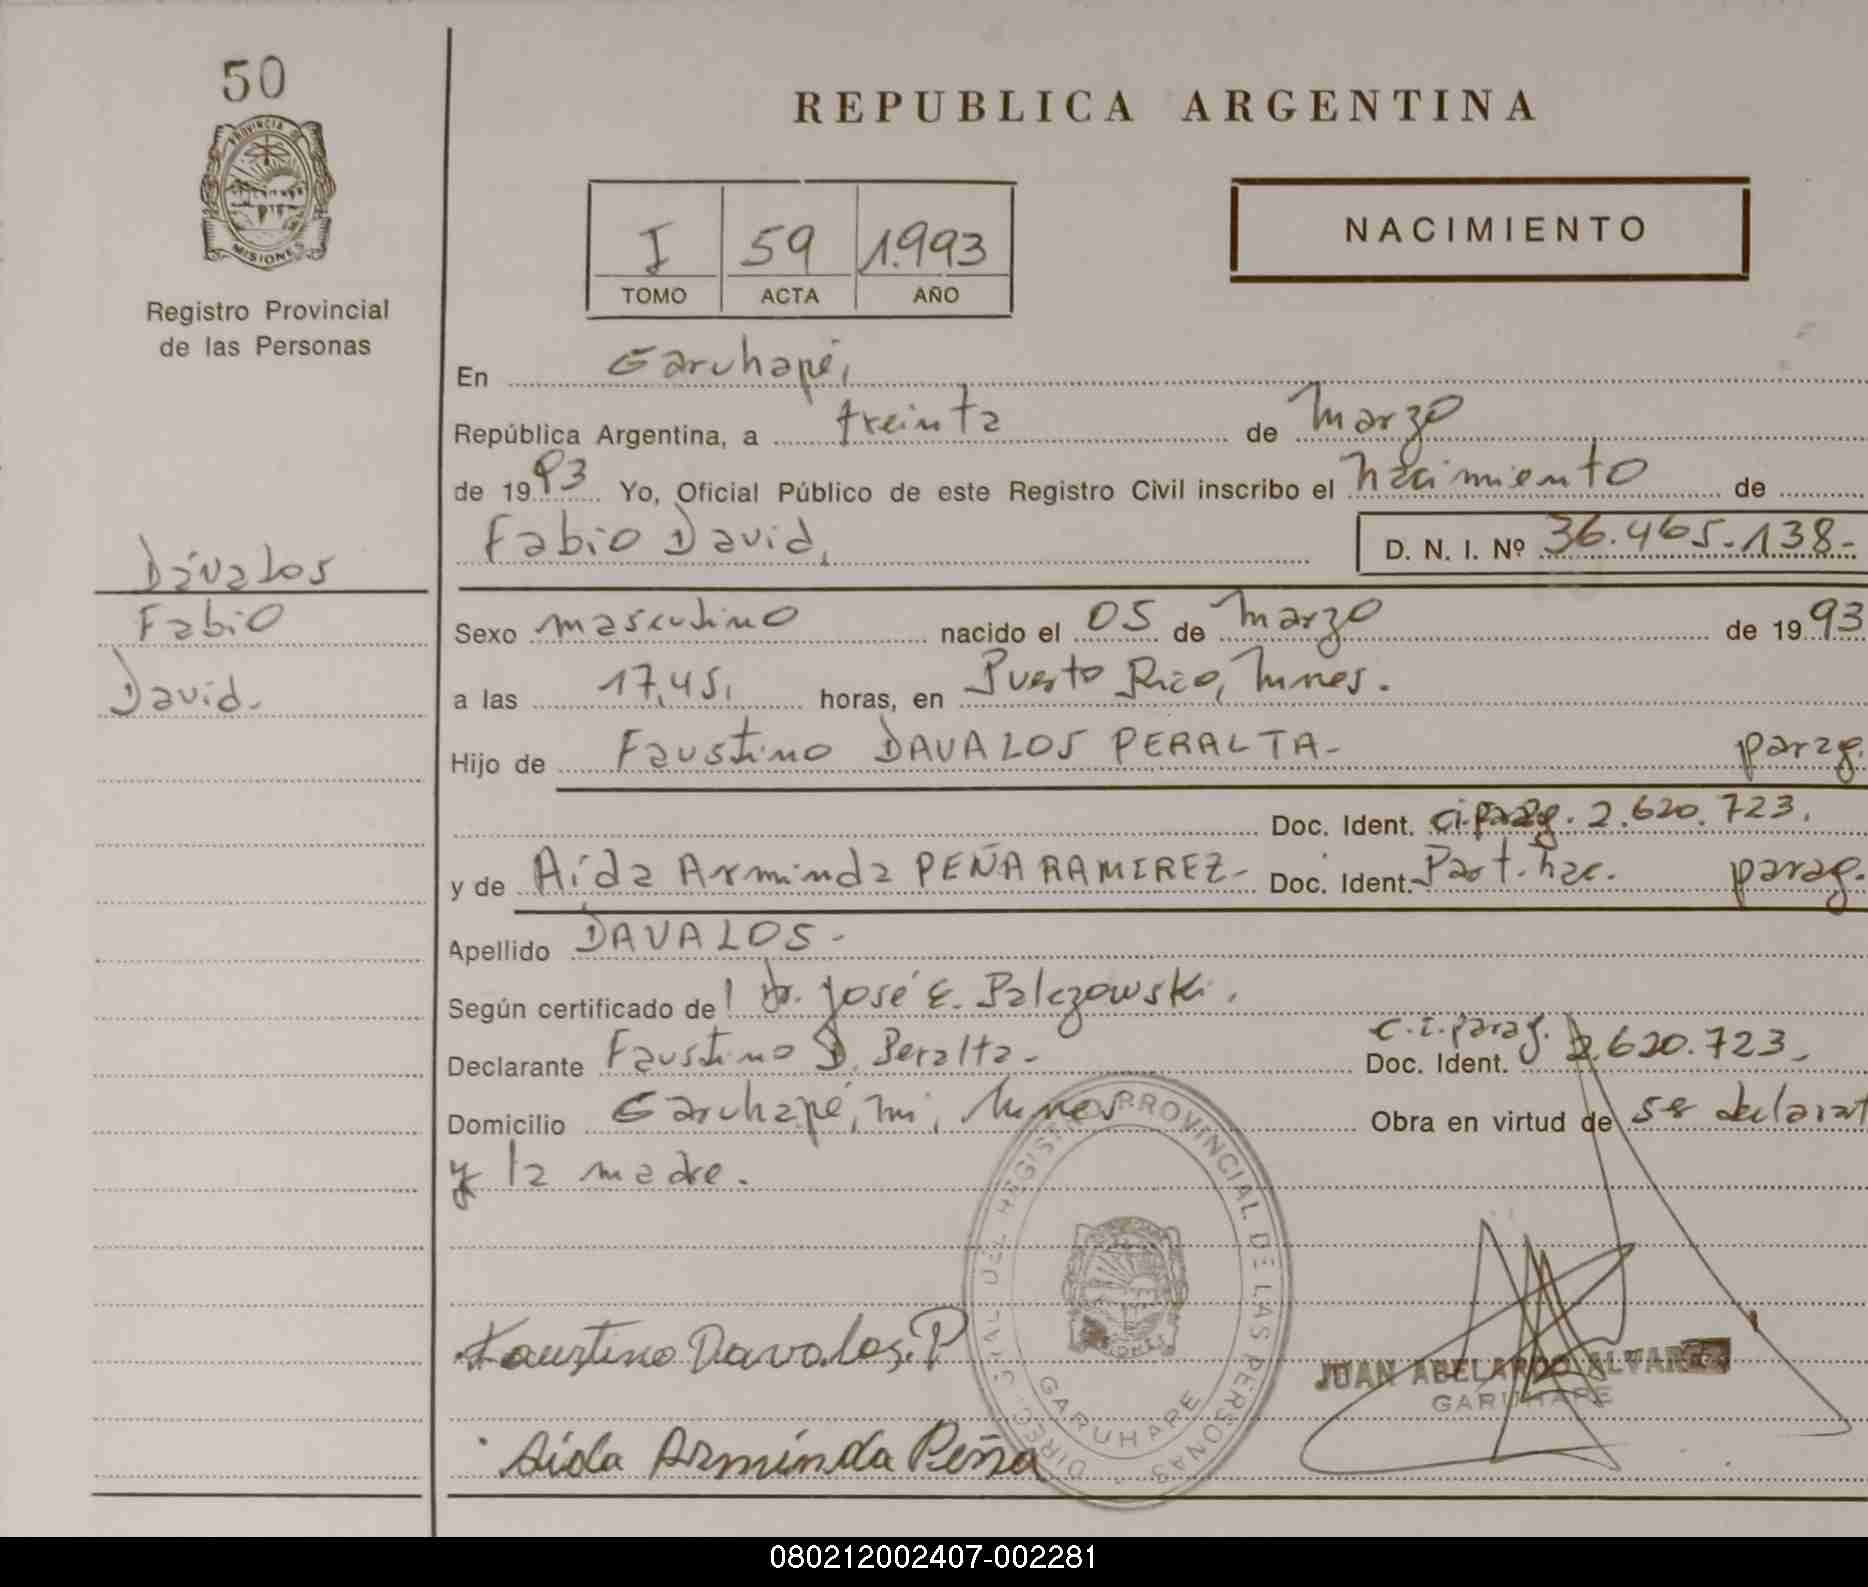 50
PROVINCIA DE
MISIONES
Registro Provincial
de las Personas
Dávalos
Fabio
David.-
REPUBLICA ARGENTINA
I 59 1.993
TOMO ACTA AÑO
NACIMIENTO
En Garuhapé,
República Argentina, a treinta de Marzo
de 1993 Yo, Oficial Público de este Registro Civil inscribo el nacimiento de
Fabio David, D. N. I. Nº 36.465.138-
Sexo masculino nacido el 05 de Marzo de 1993
a las 17,45, horas, en Puerto Rico, Mnes.
Hijo de Faustino DAVALOS PERALTA- parag.
Doc. Ident. ci. parag. 2.620.723.
y de Aída Arminda PEÑA RAMIREZ- Doc. Ident. Part. nac. parag.
Apellido DAVALOS-
Según certificado de Dr. José E. Palczowski.
Declarante Faustino D. Peralta- Doc. Ident. c.i. parag. 2.620.723-
Domicilio Garuhapé, mi, Mnes Obra en virtud de ser declarat
y la madre.
Faustino Davalos.P
Aida Arminda Peña
DIREC. GRAL DEL REGISTRO PROVINCIAL DE LAS PERSONAS
MISIONES
GARUHAPE
JUAN ABELARDO ALVAREZ
GARUHAPE
080212002407-002281